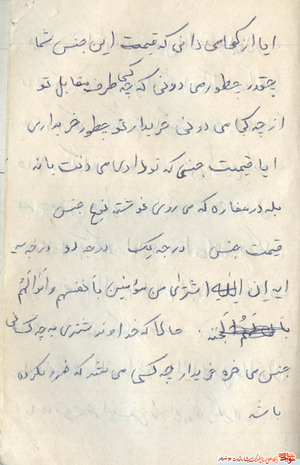 ایا از کجا می دانی که قیمت این جنس شما
چقدر چطور می دونی که چه کسی طرف مقابل تو
از چه کجا می دونی خریدار تو چطور خریداری
ایا قیمت جنسی که تو دادی می دانت یا نه
بله در مغازه که می روی نوشته نوع جنس
قیمت جنس درجه یک درجه دو درجه سه
ایه ان الله اشتری من مؤمنین بأنفسهم و اموالهم
بأن لهم الجنه . حالا که خداوند مشتری به چه کسانی
جنس می خره خریدار چه کسی می باشد که ضرر نکرده
باشد